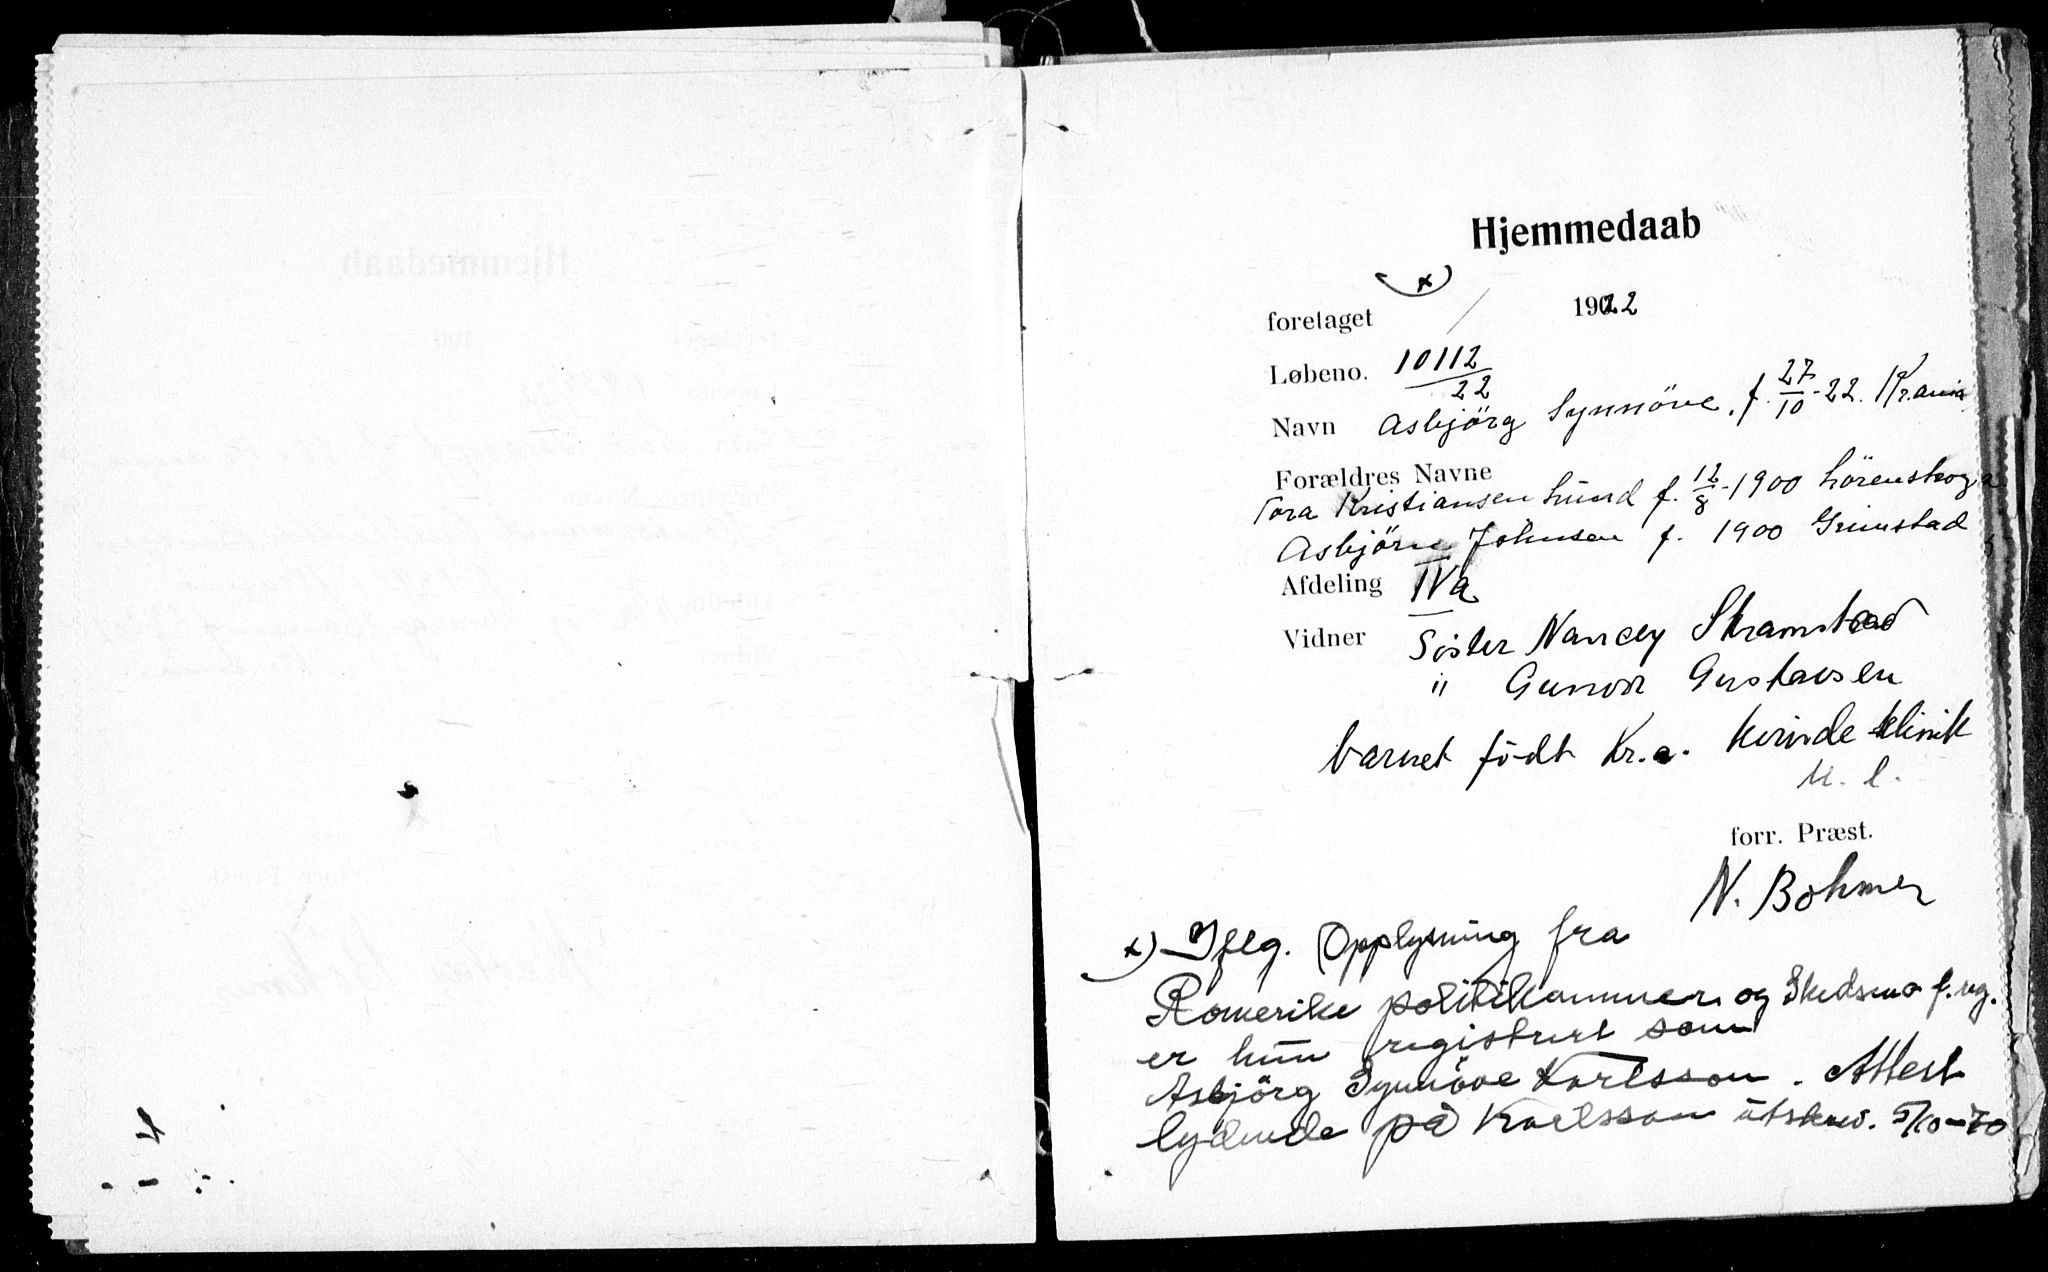 Hjemmedaab
x)
foretaget / 1922
Løbeno. 10112/22
Navn Asbjörg Synnöve. f. 27/10-22. Kr.ania
Forældres Navne
Tora Kristiansen Lund f. 12/8-1900 Lörenskog
Asbjörn Johnsen f. 1900 Grimstad
Afdeling IVa
Vidner Söster Nancy Skramstad
" Gunvor Gustavsen
barnet födt Kr.a. Kvindeklinik
U. l.
forr. Præst.
N. Bohmer
x) Iflg. Opplysning fra
Romerike politikammer og Skedsmo f.reg.
er hun registrert som
Asbjörg Synnöve Karlsson. Attest
lydende på Karlsson utskrev. 5/10-70